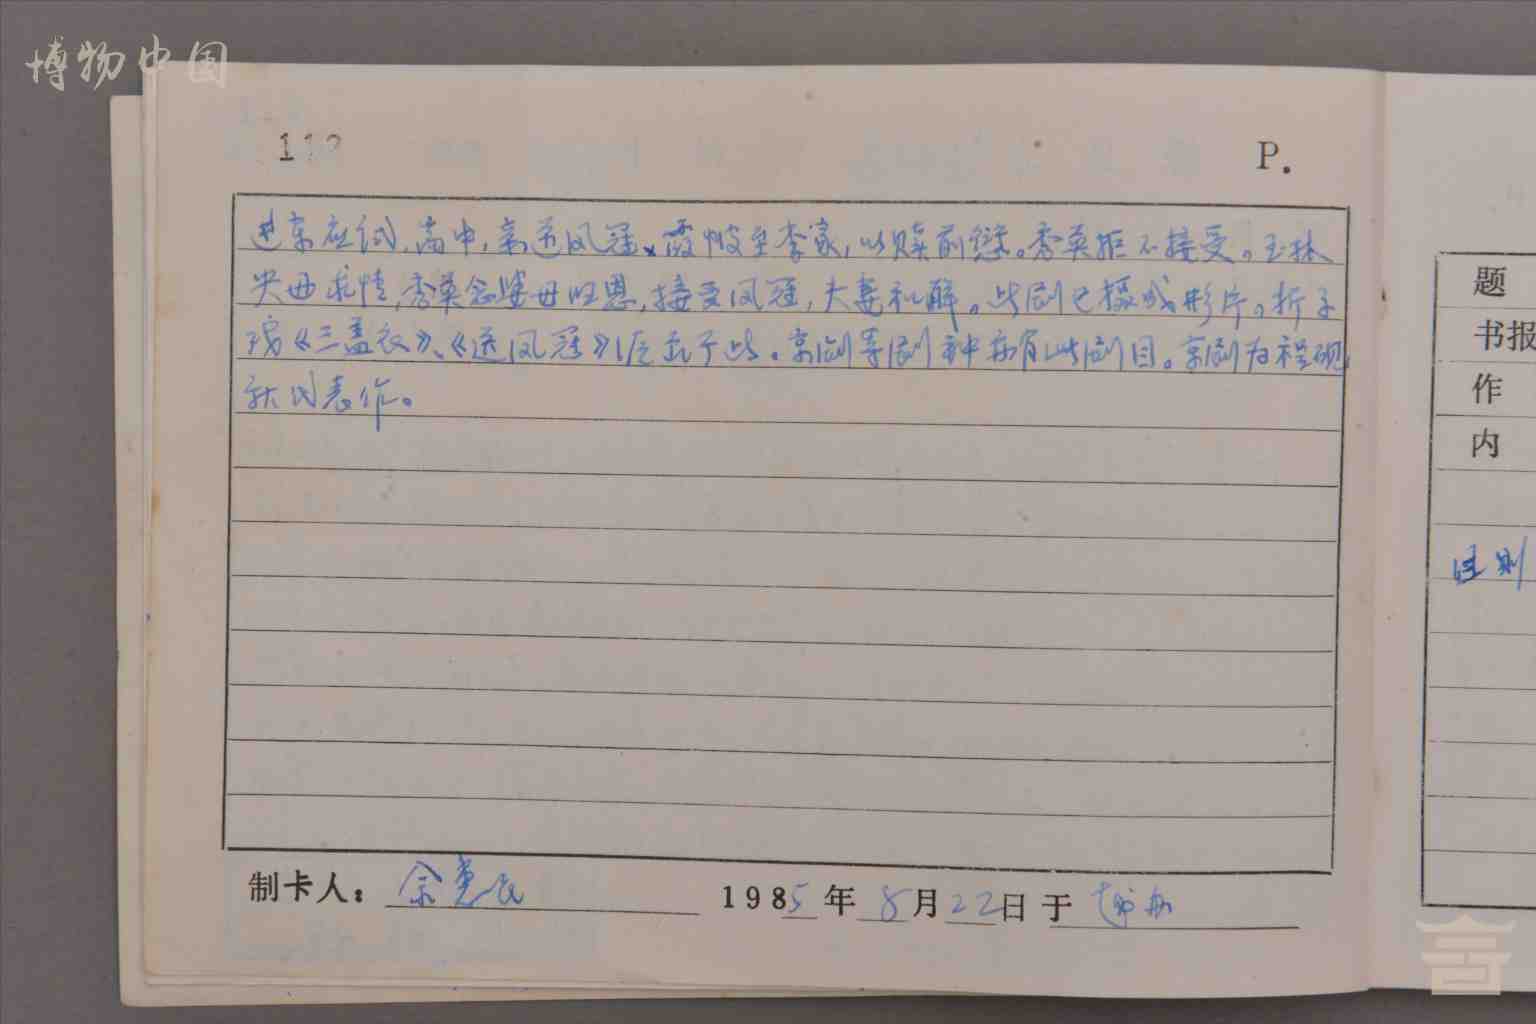 博物中国
112
P.
进京应试,高中,亲送凤冠、霞帔至李家,以赎前愆。秀英拒不接受。玉林
央母求情,秀英念婆母旧恩,接受凤冠,夫妻和解。此剧已摄成影片。折子
戏《三盖衣》、《送凤冠》即出于此。京剧等剧种亦有此剧目。京剧为程砚
秋代表作。
制卡人:
1985年 8月22日 于
题
书报
作
内